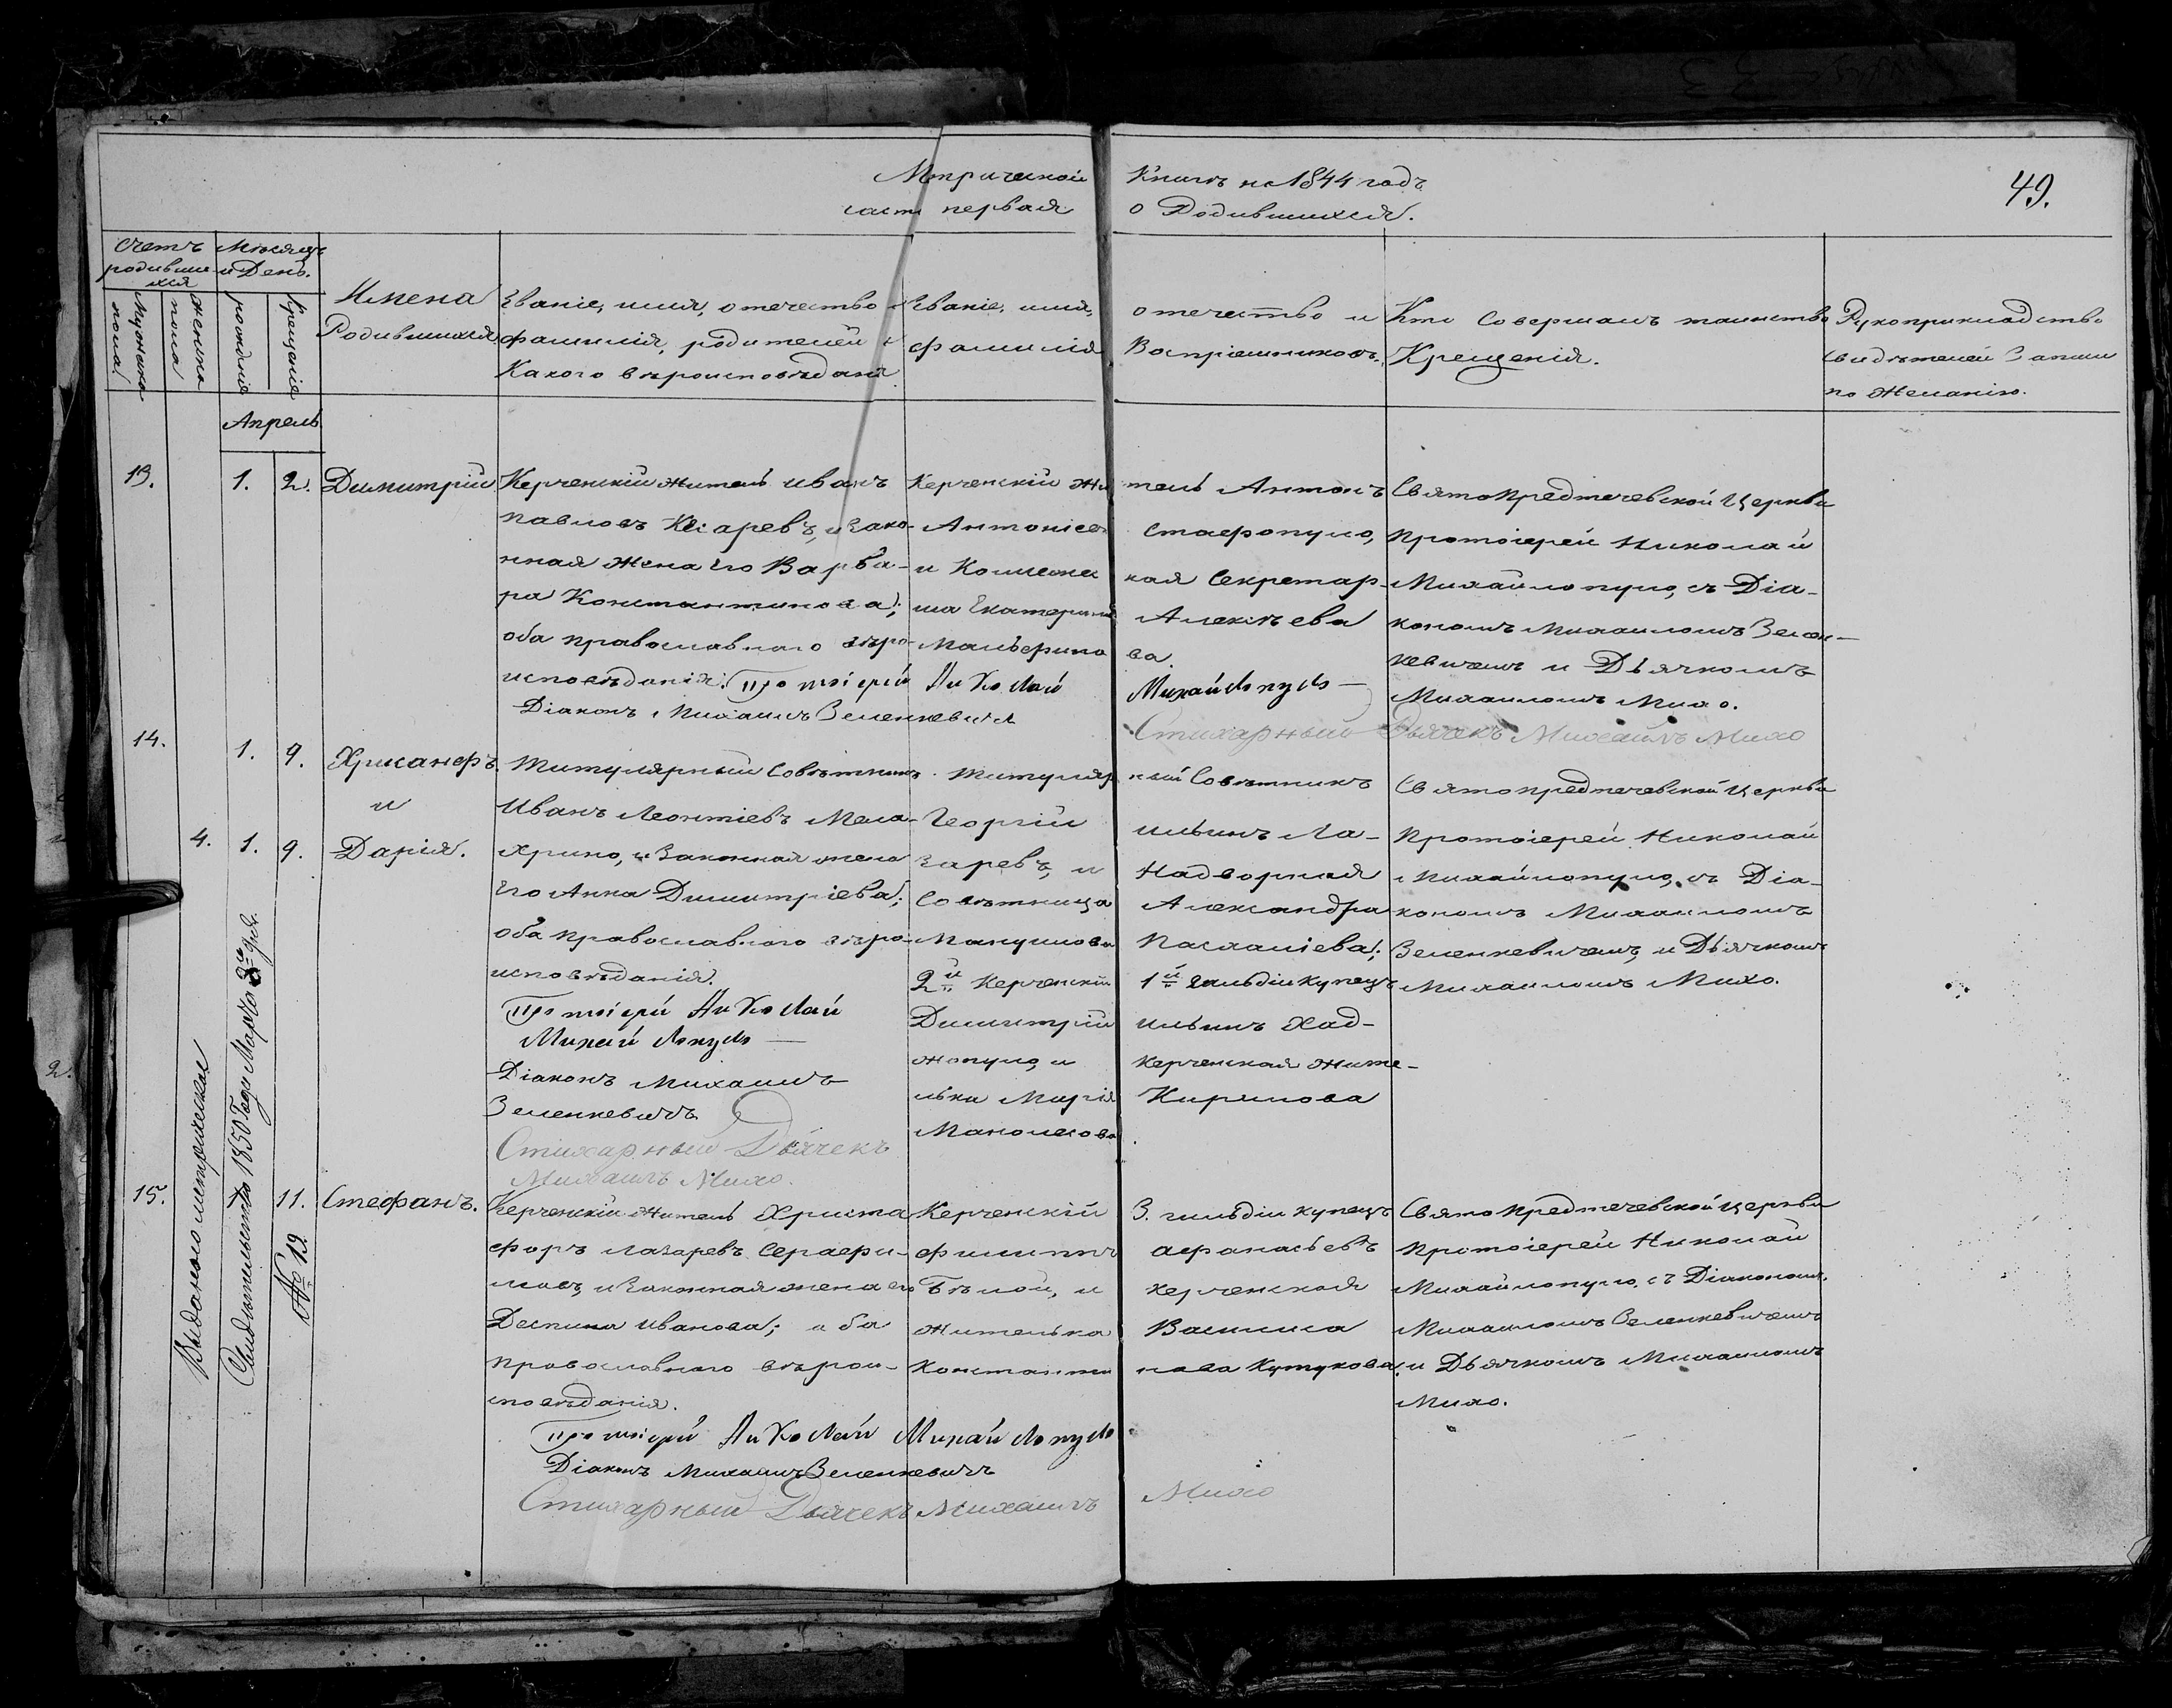 Метрической Книги на 1844 годъ
часть первая о Родившихся.
49.
Счетъ родившихся
Мужеска пола
Женска пола
Мѣсяцъ и День.
рожденія
крещенія
Имена
Родившихся
Званіе, имя, отечество и
фамилія, родителей и
Какого вѣроисповѣданія
Званіе, имя, отечество и
фамилія Воспріемниковъ.
Кто Совершалъ таинство
Крещенія.
Рукоприкладство
свидѣтелей Записи
по Желанію.
Апрель
13.
1.
2.
Димитрій
Керченскій житель Иванъ
Павловъ , и Зако-
нная Жена Его Варва-
ра Константинова;
оба православнаго вѣро-
исповѣданія.
Керченскій Житель Антонъ
Антоніевъ Стафопуло,
и Коллежская Секретар-
ша Екатерина Алексѣева
ва.
СвятоПредтечевской Церкви
Протоіерей Николай
Михайлопуло, съ Діа-
кономъ Михаиломъ Зелен-
кевичемъ и Дьячкомъ
Михаиломъ Михо.
Протоіерей Николай Михайлопуло
Діаконъ Михаилъ Зеленкевичъ
Стихарный Дьячекъ Михаилъ Михо
14.
1.
9.
Хрисанфъ
и
4.
1.
9.
Дарія.
Титулярный Совѣтникъ
Иванъ Леонтіевъ Мела-
хрино, и Законная жена
Его Анна Димитріева;
оба Православнаго вѣро-
исповѣданія.
Титулярный Совѣтникъ
Георгій Ильинъ Ла-
заревъ, и Надворная
Совѣтница Александра
Манушова Пасхаліева;
2й Керченскій 1й гильдіи купецъ
Димитрій Ильинъ Хад-
жопуло, и Керченская жите-
лька Марія Кирилова
СвятоПредтечевской Церкви
Протоіерей Николай
Михайлопуло, съ Діа-
кономъ Михаиломъ
Зеленкевичемъ, и Дьячкомъ
Михаиломъ Михо.
Протоіерей Николай
Михайлопуло
Діаконъ Михаилъ
Зеленкевичъ
Стихарный Дьячекъ
Михаилъ Михо.
Выдано метрическое
Свидѣтельство 1850 Году Марта 3го дня.
№ 19
15.
11.
Стефанъ.
Керченскій Житель Христо
форъ Лазаревъ Серафи-
мовъ, и Законная жена его
Деспина Иванова; оба
Православнаго вѣрои-
сповѣданія.
Керченскій 3. гильдіи купецъ
Филиппъ Афанасьевъ
Бѣлой, и Керченская
Жителька Василиса
Константинова Кутукова.
СвятоПредтечевской Церкви
Протоіерей Николай
Михайлопуло, съ Діакономъ
Михаиломъ Зеленкевичемъ
и Дьячкомъ Михаиломъ
Михо.
Протоіерей Николай Михайлопуло
Діаконъ Михаилъ Зеленкевичъ
Стихарный Дьячекъ Михаилъ Михо